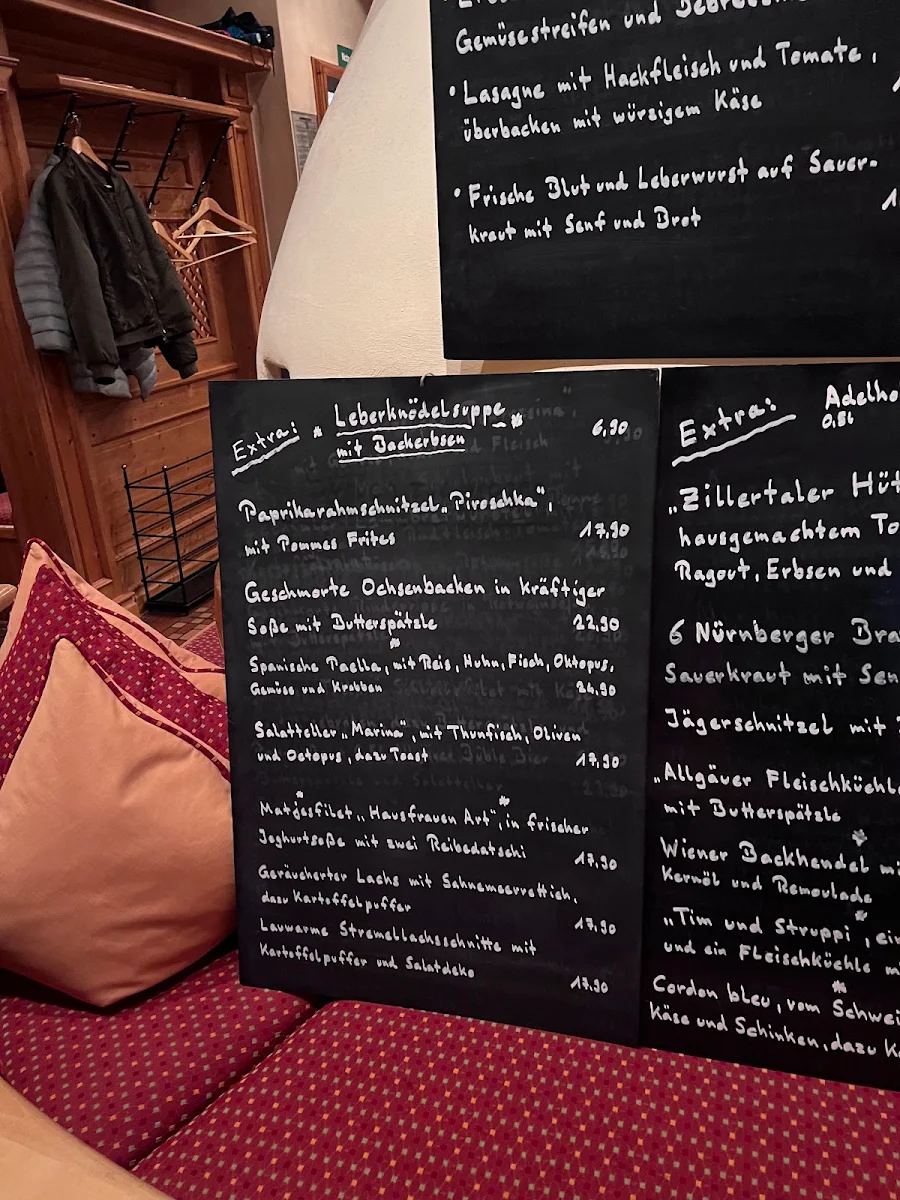 Gemüsestreifen und
• Lasagne mit Hackfleisch und Tomate,
überbacken mit würzigem Käse
• Frische Blut und Leberwurst auf Sauer-
kraut mit Senf und Brot
Extra: * Leberknödelsuppe * 6,90
mit Backerbsen
Paprikarahmschnitzel „Piroschka",
mit Pommes Frites 17,90
Geschmorte Ochsenbacken in Kräftiger
Soße mit Butterspätzle 22,90
Spanische Paella, mit Reis, Huhn, Fisch, Oktopus,
Gemüse und Krabben 24,90
Salatteller „Marina", mit Thunfisch, Oliven
und Octopus, dazu Toast 17,90
Matjesfilet „Hausfrauen Art", in frischer
Joghurtsoße mit zwei Reibedatschi 17,90
Geräucherter Lachs mit Sahnemeerrettich,
dazu Kartoffelpuffer 17,90
Lauwarme Stremellachsschnitte mit
Kartoffelpuffer und Salatdeko 17,90
Extra:
0,5l
„Zillertaler
hausgemachtem
Ragout, Erbsen und
6 Nürnberger
Sauerkraut mit
Jägerschnitzel mit
„Allgäuer
mit Butterspätzle
Wiener Backhendel
Kernöl und Remoulade
„Tim und Struppi",
und ein Fleischküchle
Cordon bleu, vom
Käse und Schinken, dazu